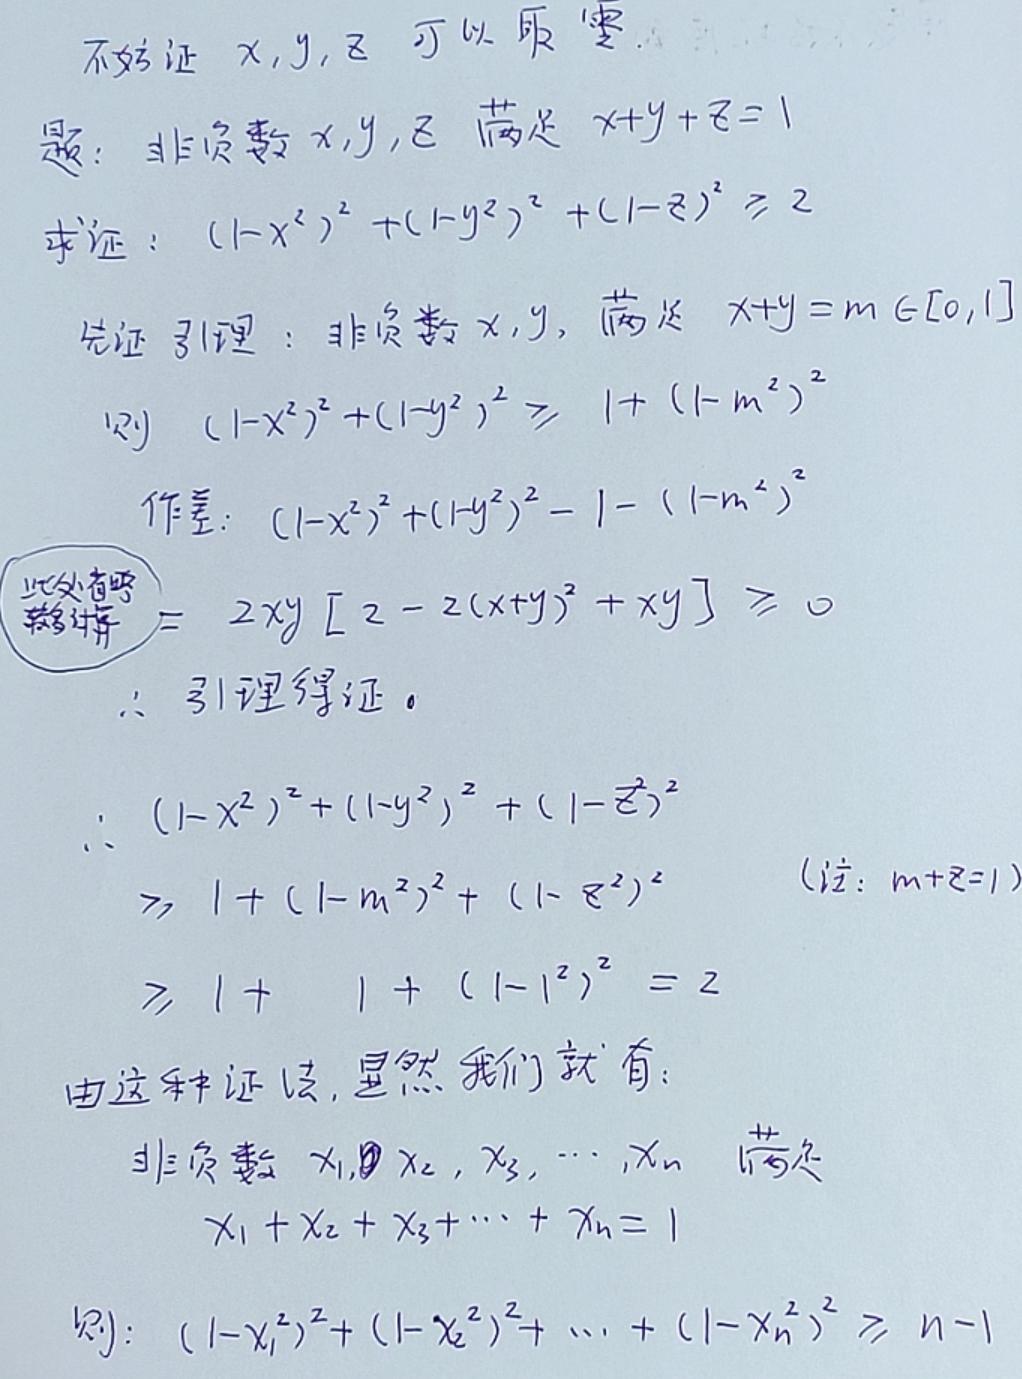 不妨证 x, y, z 可以取零.
题: 非负数 x, y, z 满足 x+y+z=1
求证: (1-x²)²+(1-y²)²+(1-z)²≥2
先证引理: 非负数 x, y, 满足 x+y=m∈[0,1]
则 (1-x²)²+(1-y²)²≥1+(1-m²)²
作差: (1-x²)²+(1-y²)²-1-(1-m²)²
此处省略
较多计算
= 2xy[2-2(x+y)²+xy]≥0
∴ 引理得证。
∴ (1-x²)²+(1-y²)²+(1-z²)²
≥ 1+(1-m²)²+(1-z²)² (注: m+z=1)
≥ 1+ 1+(1-1²)²=2
由这种证法, 显然我们就有:
非负数 x₁, x₂, x₃, …, xₙ 满足
x₁+x₂+x₃+…+xₙ=1
则: (1-x₁²)²+(1-x₂²)²+…+(1-xₙ²)²≥n-1